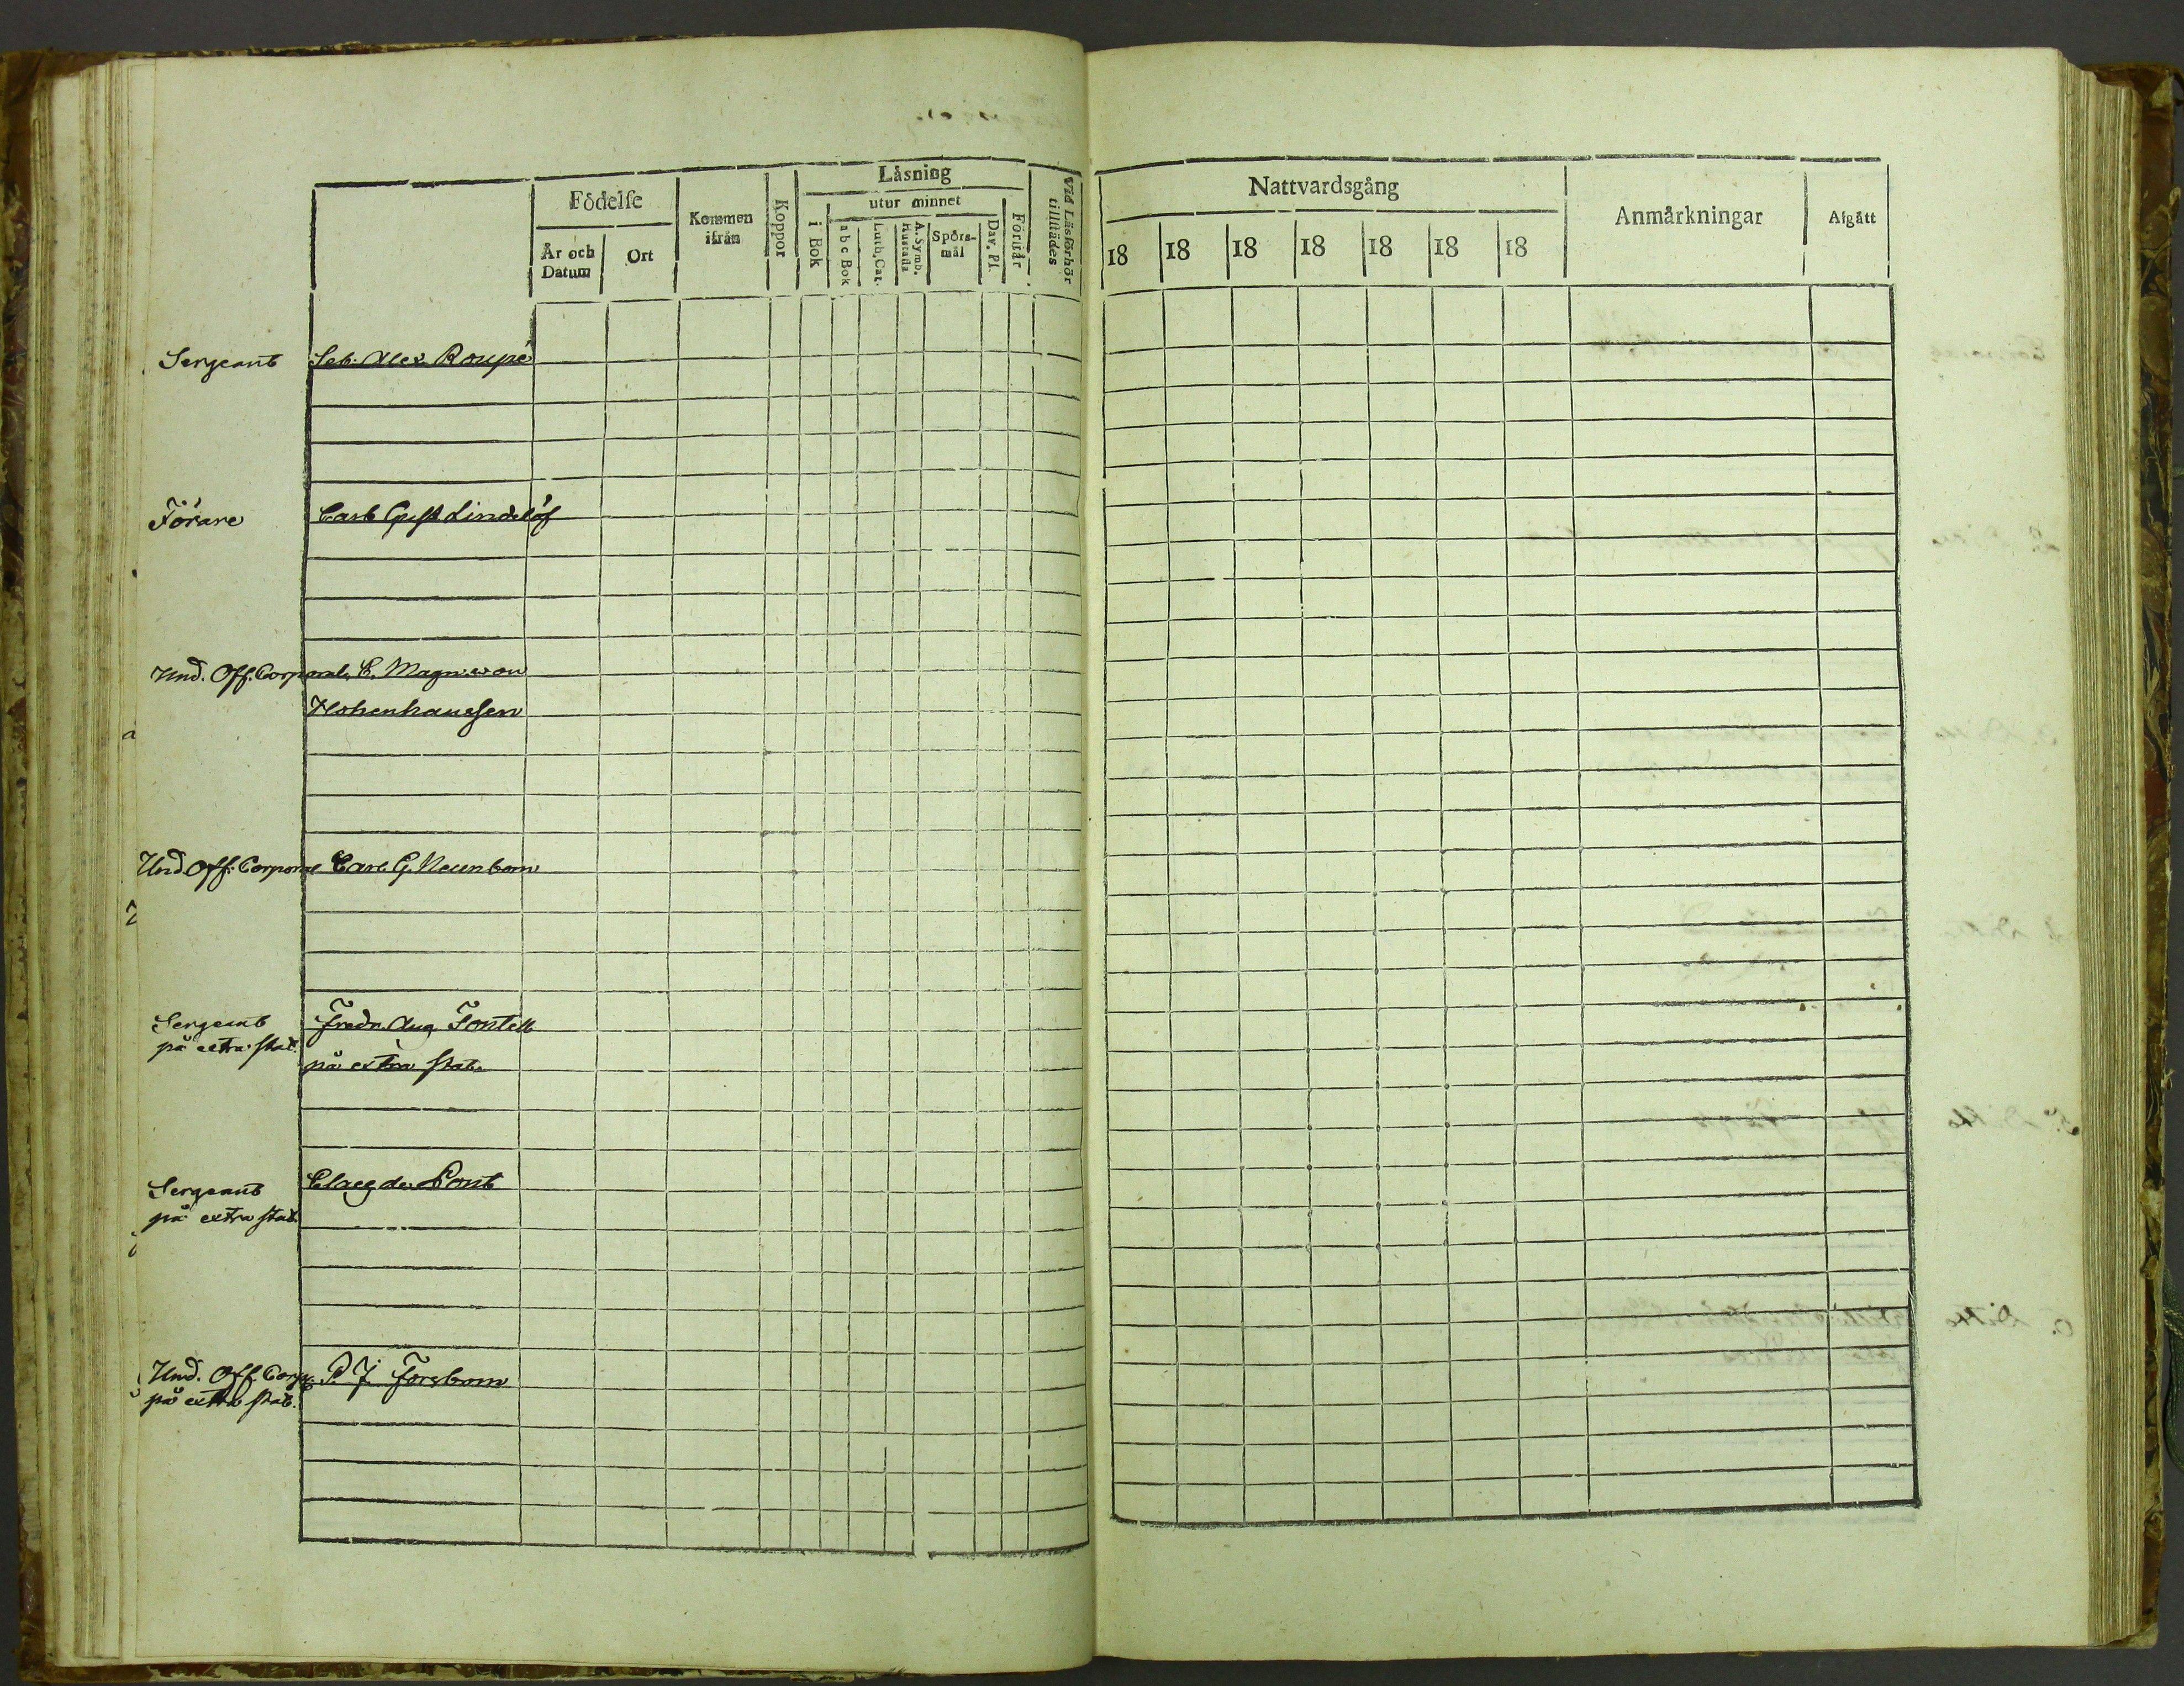 Födelse
År och Datum
Ort
Kommen ifrån
Koppor
Läsning
i Bok
utur minnet
a b c Bok
Luth. Cat.
A. Symb. Hustafla
Spörsmål
Dav. Ps.
Förstår
Vid Läsförhör tillstädes
Nattvardsgång
18 18 18 18 18 18 18
Anmärkningar
Afgått
Sergeant Seb. Alex. Roupé
Förare Carl Gust. Lindelöf
Und. Off. Corporal, C. Magn. von
Hohenhausen
Und. Off. Corporal Carl G.
Sergeant Fredr. Aug. Fontell
på extra stat. på extra stat.
Sergeant Claes de Pont
på extra stat.
Und. Off. Corp. P. J. Forsbom
på extra stat.